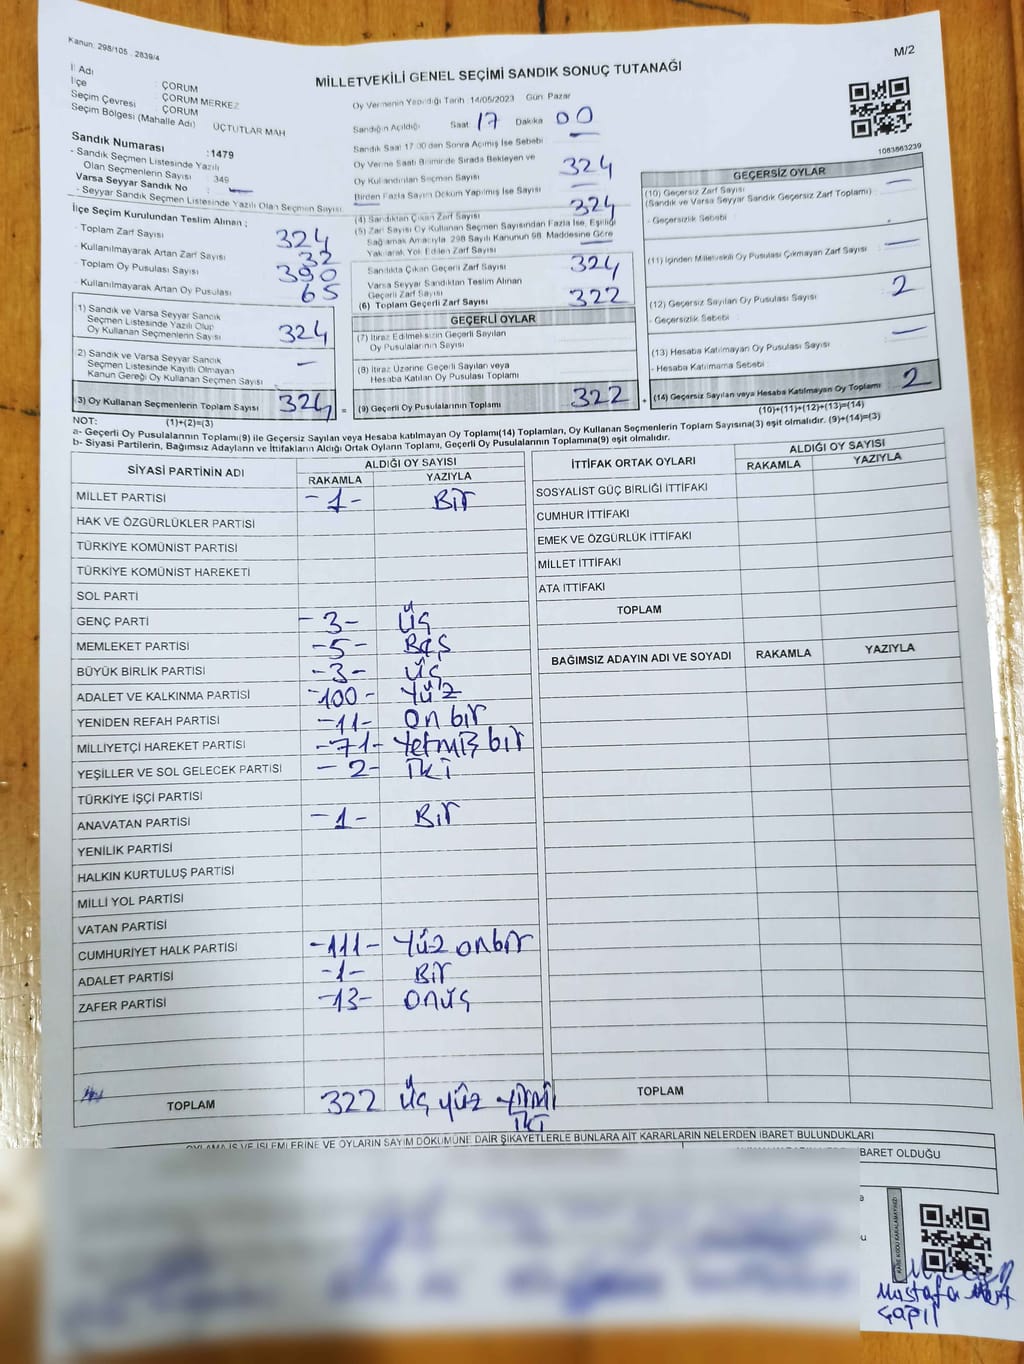 Kanun: 298/105 2839/4
M/2
MİLLETVEKİLİ GENEL SEÇİMİ SANDIK SONUÇ TUTANAĞI
İl Adı : ÇORUM
İlçe : ÇORUM MERKEZ
Seçim Çevresi : ÇORUM
Seçim Bölgesi (Mahalle Adı) ÜÇTUTLAR MAH
Sandık Numarası : 1479
- Sandık Seçmen Listesinde Yazılı
Olan Seçmenlerin Sayısı 349
Varsa Seyyar Sandık No —
- Seyyar Sandık Seçmen Listesinde Yazılı Olan Seçmen Sayısı
İlçe Seçim Kurulundan Teslim Alınan ;
- Toplam Zarf Sayısı 324
- Kullanılmayarak Artan Zarf Sayısı 32
- Toplam Oy Pusulası Sayısı 390
- Kullanılmayarak Artan Oy Pusulası 65
1) Sandık ve Varsa Seyyar Sandık
Seçmen Listesinde Yazılı Olup
Oy Kullanan Seçmenlerin Sayısı 324
2) Sandık ve Varsa Seyyar Sandık
Seçmen Listesinde Kayıtlı Olmayan
Kanun Gereği Oy Kullanan Seçmen Sayısı —
3) Oy Kullanan Seçmenlerin Toplam Sayısı 324
(1)+(2)=(3)
Oy Vermenin Yapıldığı Tarih 14/05/2023 Gün: Pazar
Sandığın Açıldığı Saat 17 Dakika 00
Sandık Saat 17:00'den Sonra Açılmış İse Sebebi —
Oy Verme Saati Bitiminde Sırada Bekleyen ve
Oy Kullandırılan Seçmen Sayısı 324
Birden Fazla Sayım Döküm Yapılmış İse Sayısı —
(4) Sandıktan Çıkan Zarf Sayısı 324
(5) Zarf Sayısı Oy Kullanan Seçmen Sayısından Fazla İse, Eşitliği
Sağlamak Amacıyla, 298 Sayılı Kanunun 98. Maddesine Göre
Yakılarak Yok Edilen Zarf Sayısı —
Sandıkta Çıkan Geçerli Zarf Sayısı 324
Varsa Seyyar Sandıktan Teslim Alınan
Geçerli Zarf Sayısı
(6) Toplam Geçerli Zarf Sayısı 322
GEÇERLİ OYLAR
(7) İtiraz Edilmeksizin Geçerli Sayılan
Oy Pusulalarının Sayısı
(8) İtiraz Üzerine Geçerli Sayılan veya
Hesaba Katılan Oy Pusulası Toplamı
= (9) Geçerli Oy Pusulalarının Toplamı 322 +
1083863239
GEÇERSİZ OYLAR
(10) Geçersiz Zarf Sayısı —
(Sandık ve Varsa Seyyar Sandık Geçersiz Zarf Toplamı)
- Geçersizlik Sebebi
(11) İçinden Milletvekili Oy Pusulası Çıkmayan Zarf Sayısı —
(12) Geçersiz Sayılan Oy Pusulası Sayısı 2
- Geçersizlik Sebebi
(13) Hesaba Katılmayan Oy Pusulası Sayısı —
- Hesaba Katılmama Sebebi
(14) Geçersiz Sayılan veya Hesaba Katılmayan Oy Toplamı 2
(10)+(11)+(12)+(13)=(14)
NOT:
a- Geçerli Oy Pusulalarının Toplamı(9) ile Geçersiz Sayılan veya Hesaba katılmayan Oy Toplamı(14) Toplamları, Oy Kullanan Seçmenlerin Toplam Sayısına(3) eşit olmalıdır. (9)+(14)=(3)
b- Siyasi Partilerin, Bağımsız Adayların ve İttifakların Aldığı Ortak Oyların Toplamı, Geçerli Oy Pusulalarının Toplamına(9) eşit olmalıdır.
SİYASİ PARTİNİN ADI ALDIĞI OY SAYISI
RAKAMLA YAZIYLA
MİLLET PARTİSİ -1- Bir
HAK VE ÖZGÜRLÜKLER PARTİSİ
TÜRKİYE KOMÜNİST PARTİSİ
TÜRKİYE KOMÜNİST HAREKETİ
SOL PARTİ
GENÇ PARTİ -3- Üç
MEMLEKET PARTİSİ -5- Beş
BÜYÜK BİRLİK PARTİSİ -3- Üç
ADALET VE KALKINMA PARTİSİ -100- Yüz
YENİDEN REFAH PARTİSİ -11- On bir
MİLLİYETÇİ HAREKET PARTİSİ -71- Yetmiş bir
YEŞİLLER VE SOL GELECEK PARTİSİ -2- İki
TÜRKİYE İŞÇİ PARTİSİ
ANAVATAN PARTİSİ -1- Bir
YENİLİK PARTİSİ
HALKIN KURTULUŞ PARTİSİ
MİLLİ YOL PARTİSİ
VATAN PARTİSİ
CUMHURİYET HALK PARTİSİ -111- Yüz onbir
ADALET PARTİSİ -1- Bir
ZAFER PARTİSİ -13- Onüç
TOPLAM 322 Üç yüz yirmi
iki
İTTİFAK ORTAK OYLARI ALDIĞI OY SAYISI
RAKAMLA YAZIYLA
SOSYALİST GÜÇ BİRLİĞİ İTTİFAKI
CUMHUR İTTİFAKI
EMEK VE ÖZGÜRLÜK İTTİFAKI
MİLLET İTTİFAKI
ATA İTTİFAKI
TOPLAM
BAĞIMSIZ ADAYIN ADI VE SOYADI RAKAMLA YAZIYLA
TOPLAM
OYLAMA İŞ VE İŞLEMLERİNE VE OYLARIN SAYIM DÖKÜMÜNE DAİR ŞİKAYETLERLE BUNLARA AİT KARARLARIN NELERDEN İBARET BULUNDUKLARI
BARET OLDUĞU
KARE KODU KARALAMAYINIZ!
Mustafa Mert
Çapıl